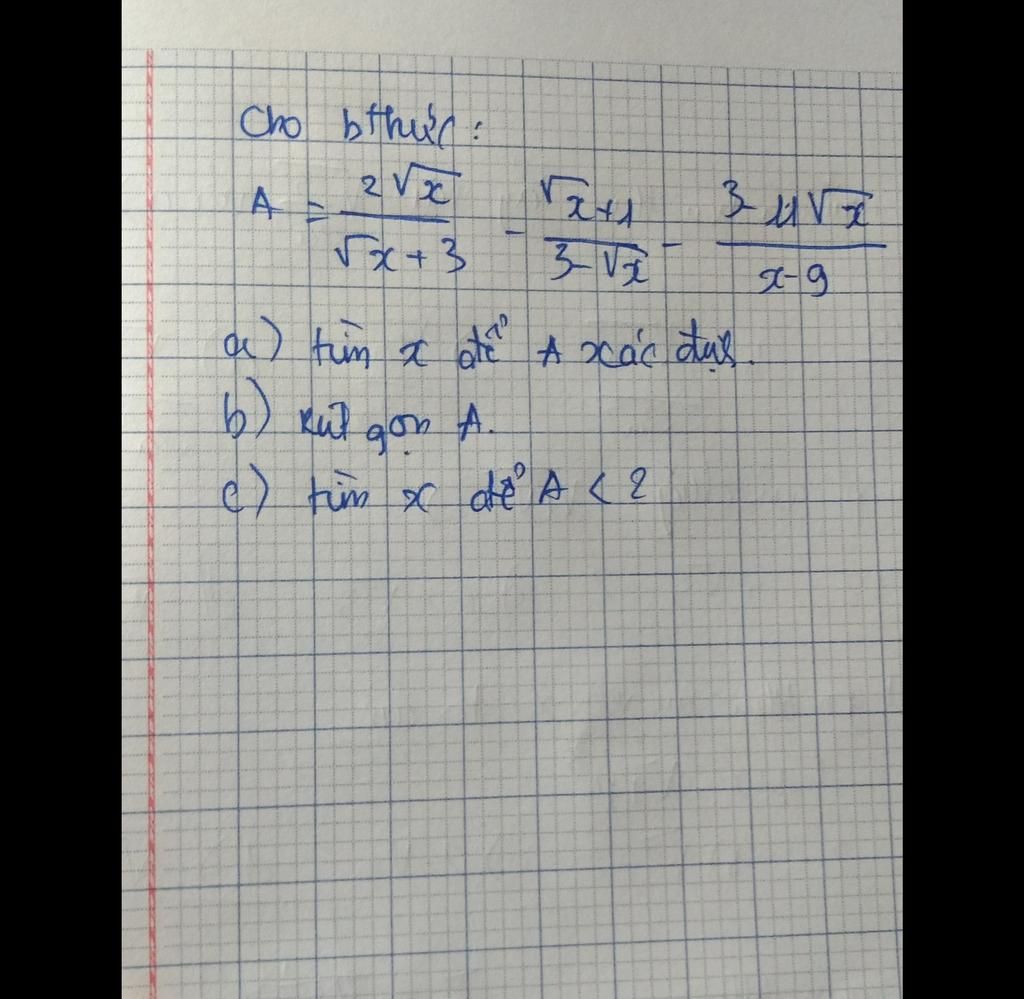 Cho bthức:
A = \frac{2\sqrt{x}}{\sqrt{x}+3} - \frac{\sqrt{x}+1}{3-\sqrt{x}} - \frac{3-11\sqrt{x}}{x-9}
a) tìm x để A xác định.
b) rút gọn A.
c) tìm x để A < 2